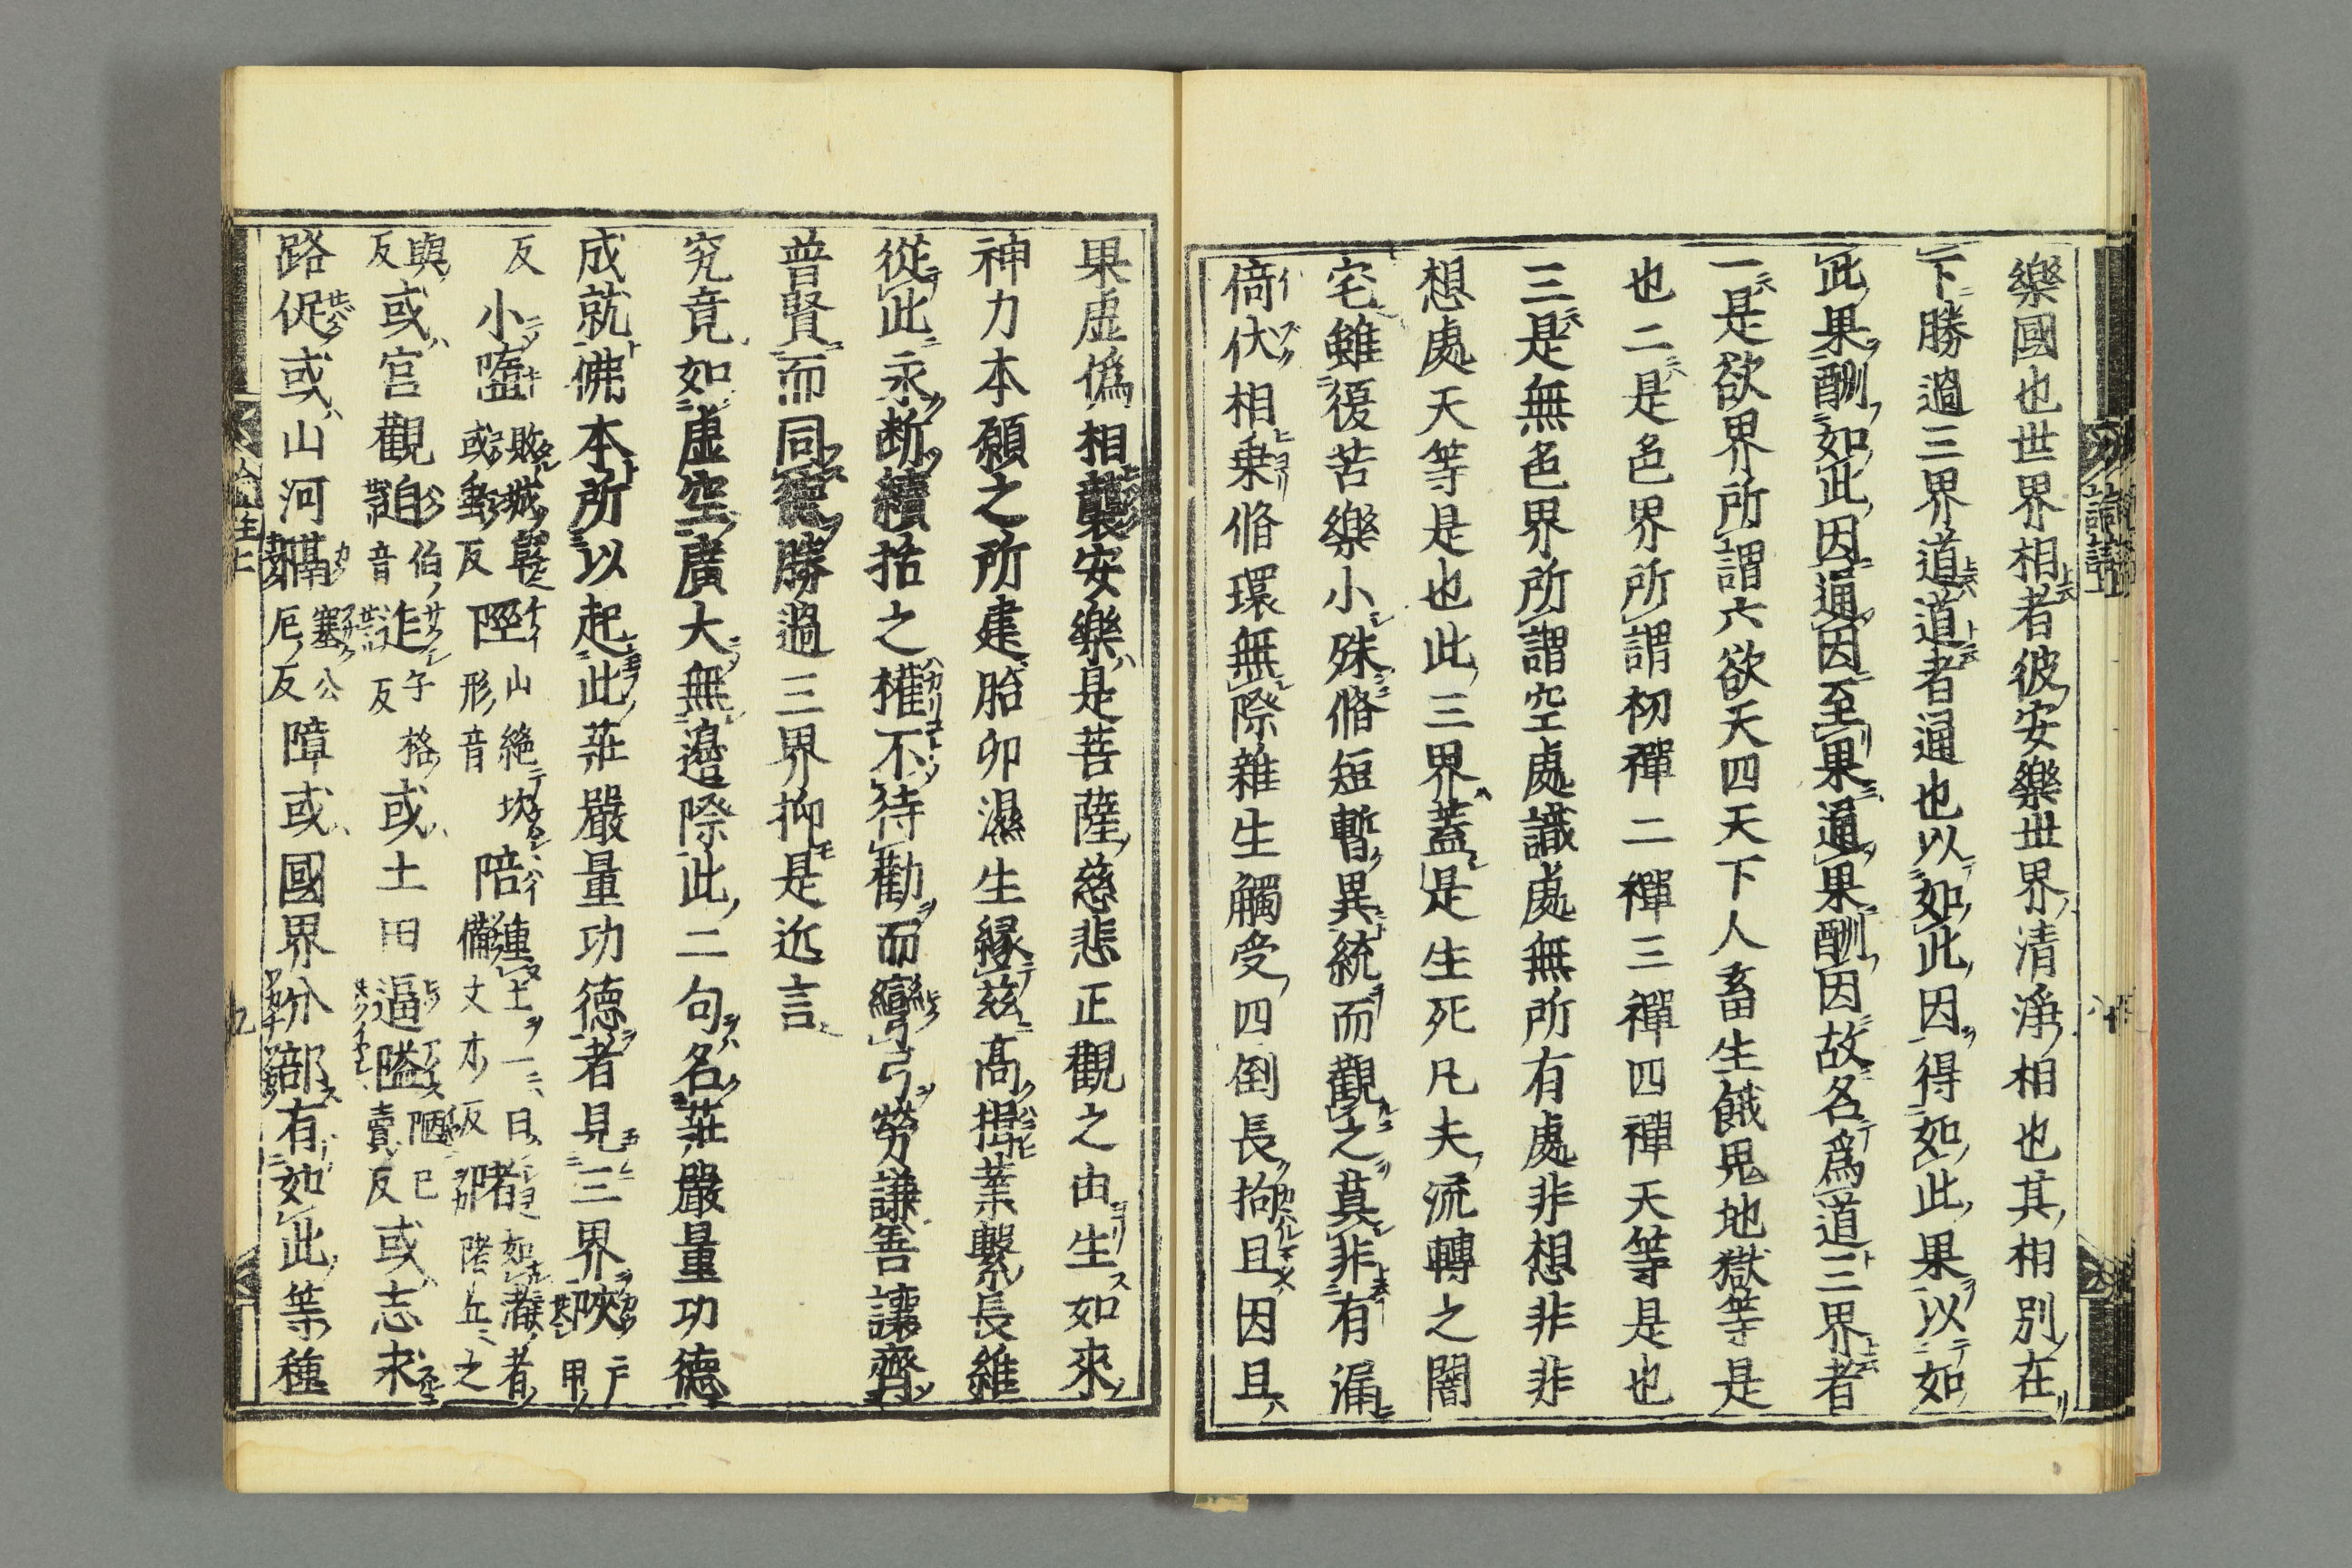 樂國也世界相者彼安樂世界清淨相也其相別在
下勝過三界道道者通也以如此因得如此果以如
此果酬如此因通因至果通果酬因故名爲道三界者
一是欲界所謂六欲天四天下人畜生餓鬼地獄等是
也二是色界所謂初禪二禪三禪四禪天等是也
三是無色界所謂空處識處無所有處非想非非
想處天等是也此三界蓋是生死凡夫流轉之闇
宅雖復苦樂小殊脩短暫異統而觀之莫非有漏
倚伏相乘脩環無際雜生觸受四倒長拘且因且
果虛僞相襲安樂是菩薩慈悲正觀之由生如來
神力本願之所建胎卵濕生緣茲高揖業繫長維
從此永斷續括之權不待勸而彎弓勞謙善讓齊
普賢而同德勝過三界抑是近言
究竟如虛空廣大無邊際此二句名莊嚴量功德
成就佛本所以起此莊嚴量功德者見三界陝 戶甲
反 小 墮 敗城阜 或垂反 陘 山絕坎 形音 陪 備文才反
與 或宮觀迫 伯音 迮 午格反 或土田逼隘 賣反 或志求
路促或山河隔 塞公厄反 障或國界分部有如此等種
九